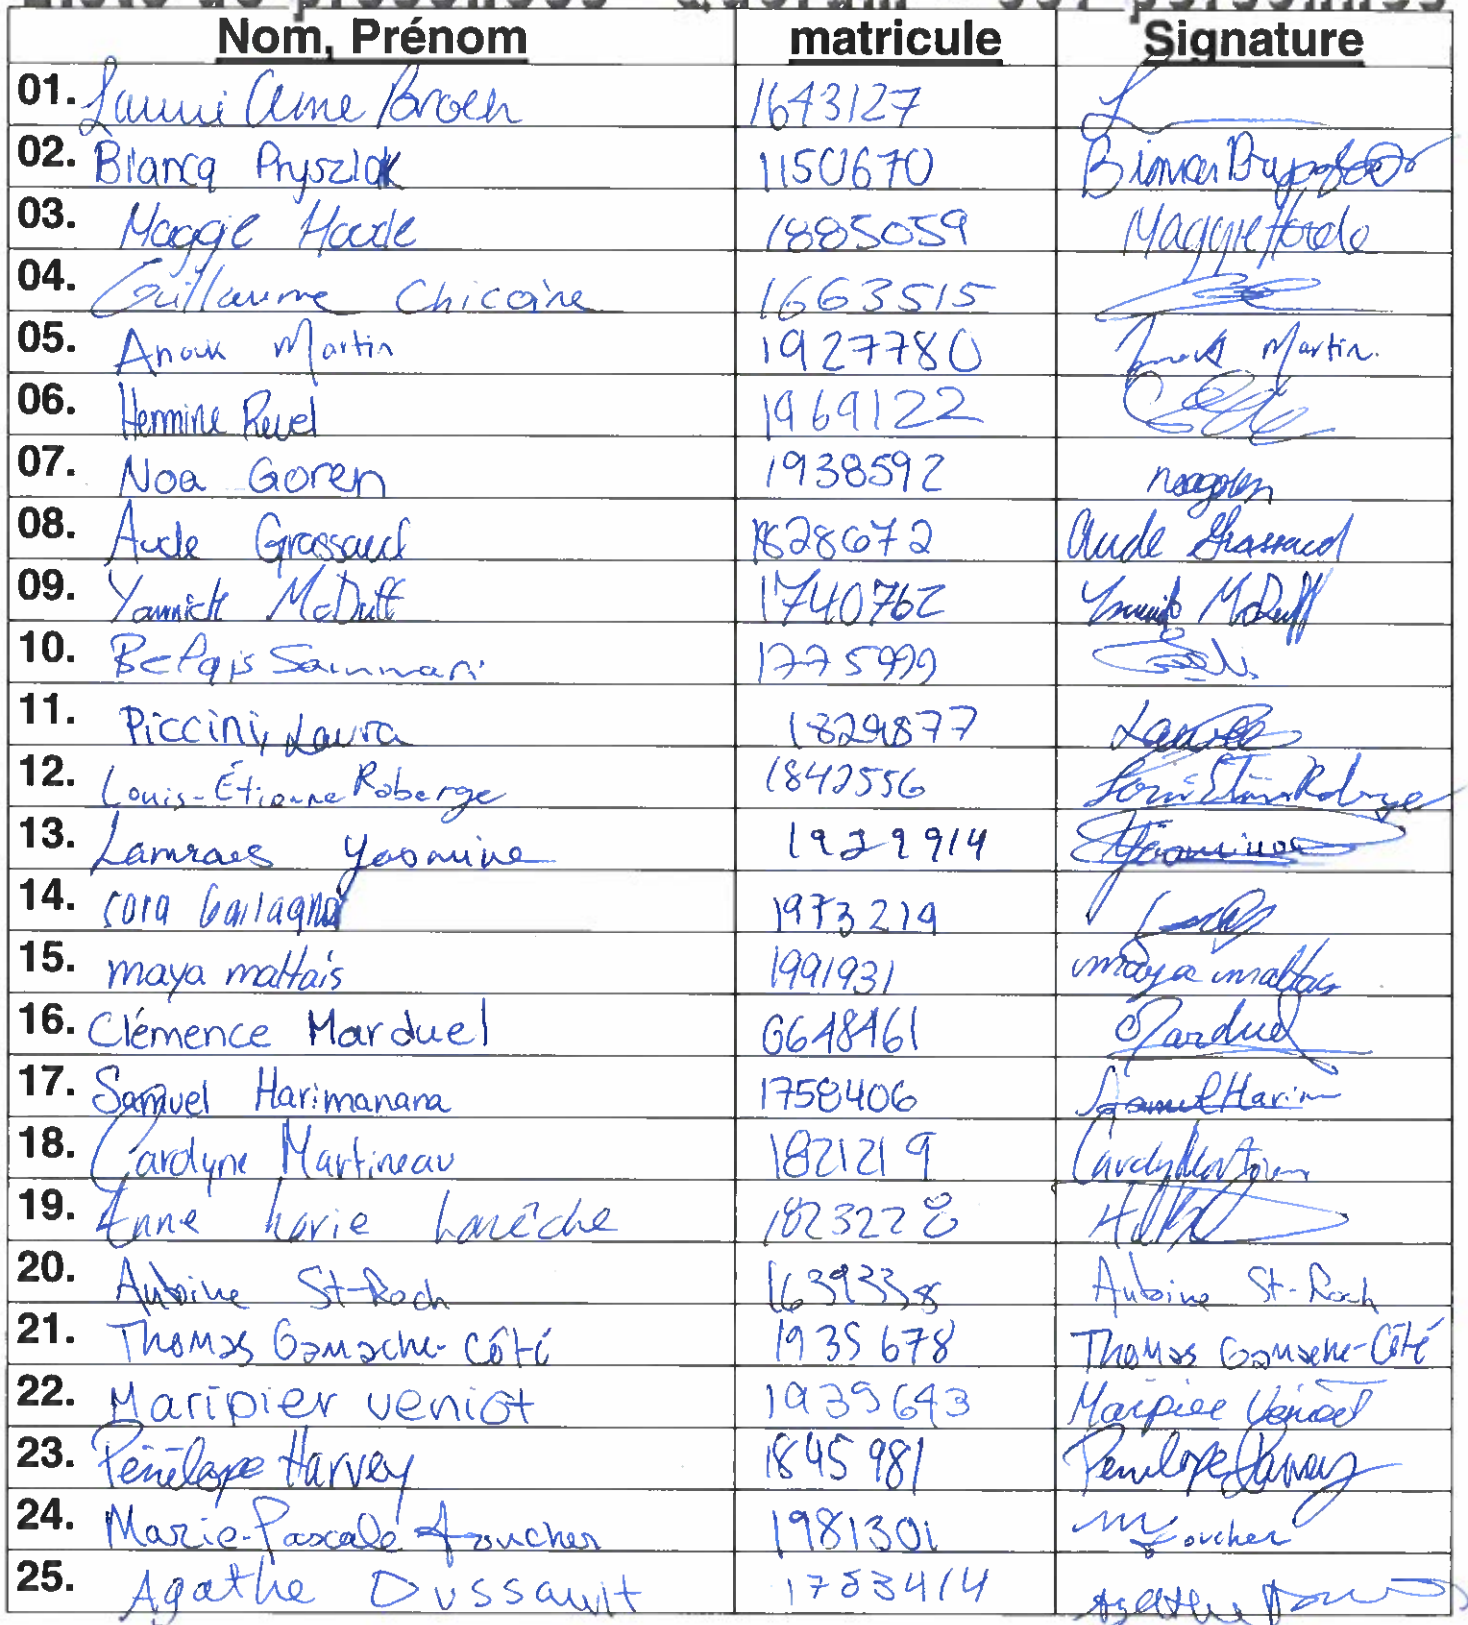 Liste de présences Quorum personnes
Nom, Prénom matricule Signature
01. Laurri Anne 1643127
02. Bianca Pryszlak 1150670 Bianca
03. Maggie Houde 1885059 Maggie Houde
04. Guillaume Chicoine 1663515
05. Anouk Martin 1927780 Anouk Martin
06. Hermine Revel 1969122
07. Noa Goren 1938592 noagoren
08. Aude Grassaud 1828672 Aude Grassaud
09. Yannick McDuff 1740762 Yannick McDuff
10. Belqis Sammari 1775999
11. Piccini, Laura 1829877 Laura
12. Louis-Étienne Roberge 1842556 Louis-Étienne Roberge
13. Lamraes Yasmine 1929914 Yasmine
14. 1973219
15. maya maltais 1991931 maya maltais
16. Clémence Marduel G648461 Marduel
17. Samuel Harimanana 1758406 Samuel Harim
18. Carolyne Martineau 1821219
19. Anne Marie Larêche 1823228
20. Antoine St-Roch 1639338 Antoine St-Roch
21. Thomas Gamache-Côté 1935678 Thomas Gamache-Côté
22. Maripier veniot 1939643 Maripier Veniot
23. Pénélope Harvey 1845981 Pénélope Harvey
24. Marie-Pascale Foucher 1981301 Foucher
25. Agathe Dussault 1783414 Agathe